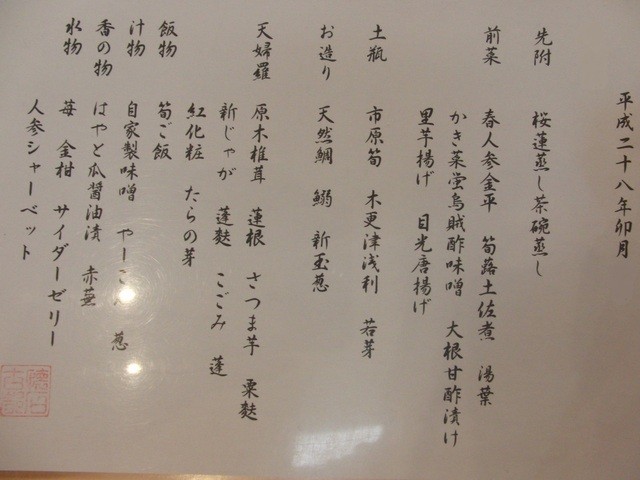 平成二十八年卯月
先附　桜蓮蒸し茶碗蒸し
前菜　春人参金平　筍蕗土佐煮　湯葉
かき菜蛍烏賊酢味噌　大根甘酢漬け
里芋揚げ　目光唐揚げ
土瓶　市原筍　木更津浅利　若芽
お造り　天然鯛　鰯　新玉葱
天婦羅　原木椎茸　蓮根　さつま芋　粟麩
新じゃが　蓬麩　こごみ　蓬
紅化粧　たらの芽
飯物　筍ご飯
汁物　自家製味噌　やーこん　葱
香の物　はやと瓜醤油漬　赤蕪
水物　苺　金柑　サイダーゼリー
人参シャーベット